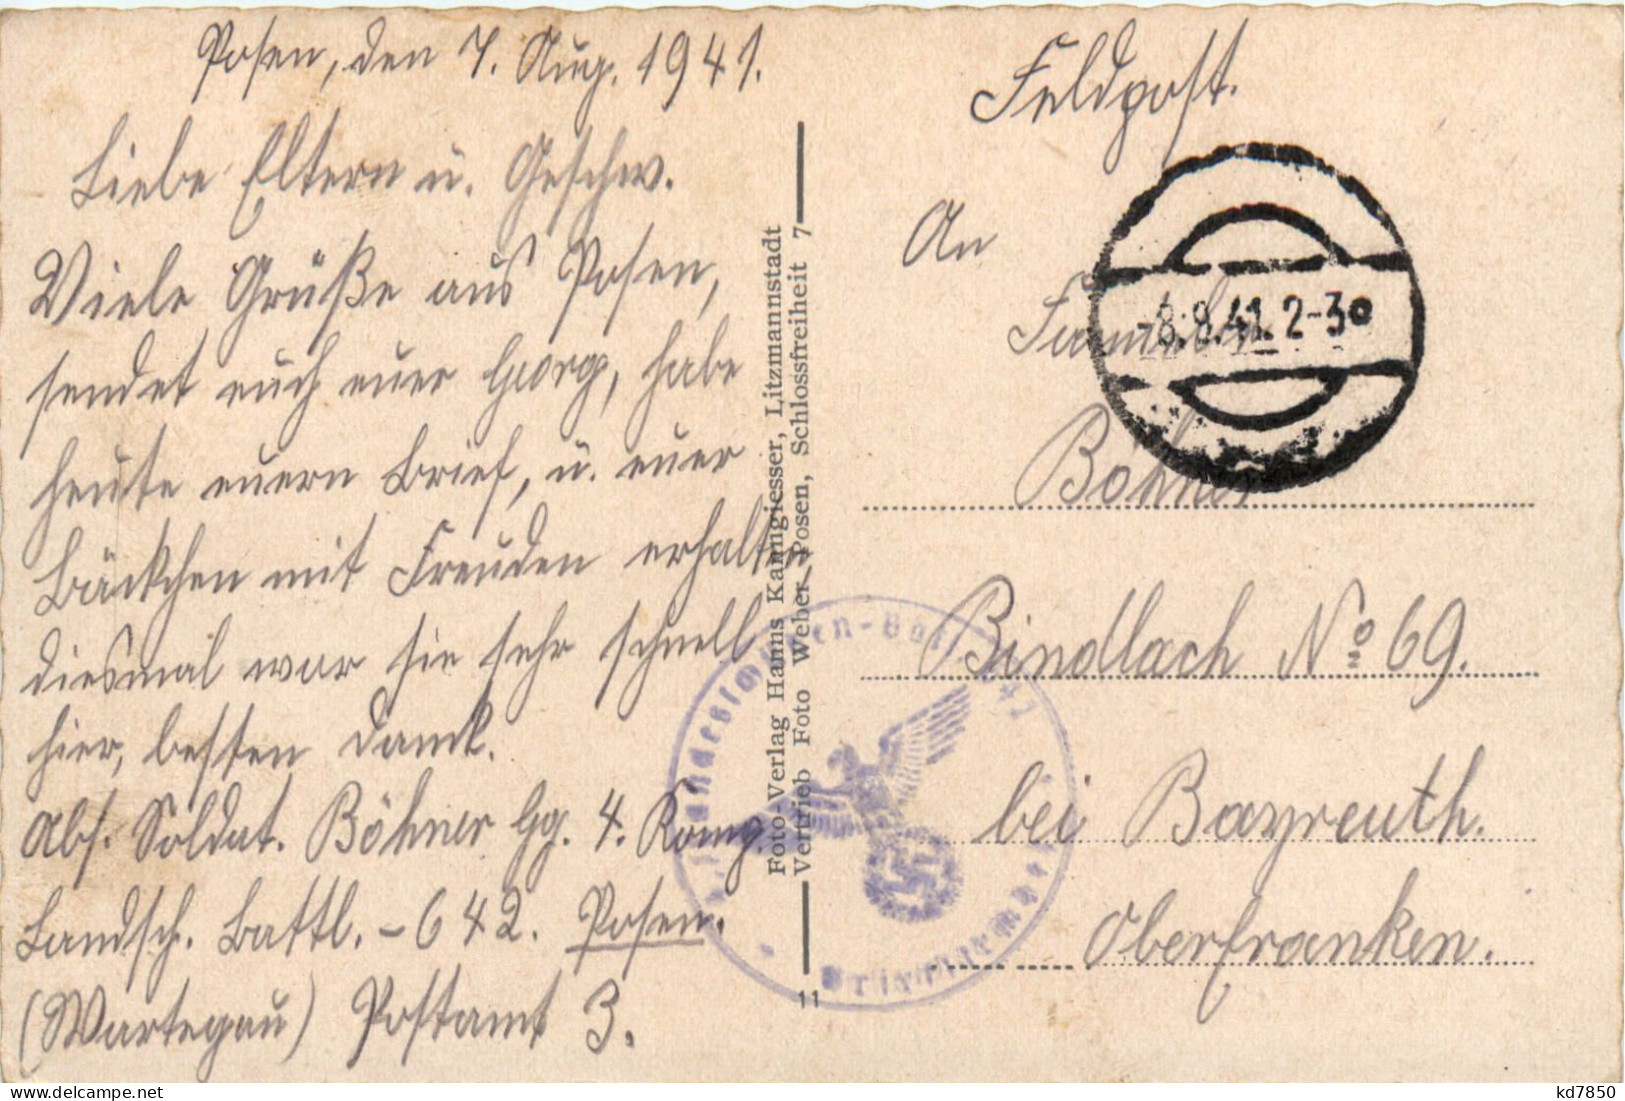 Posen, den 7. Aug. 1941.
Liebe Eltern u. Geschw.
Viele Grüße aus Posen,
sendet euch euer Georg, habe
heute euern Brief, u. euer
Päckchen mit Freuden erhalten
diesmal war sie sehr schnell
hier, besten Dank.
Abs. Soldat. Böhner Gg. 4. Komp.
Landsch. Battl. - 642. Posen.
(Wartegau) Postamt 3.
Foto-Verlag Hanns Kanngiesser, Litzmannstadt
Vertrieb Foto Weber, Posen, Schlossfreiheit 7
11
Feldpost.
-8.8.41. 2-30
An
Familie
Böhner
Bindlach No 69.
bei Bayreuth.
Oberfranken.
Landesschützen-Bat.
delcampe.net
kd7850